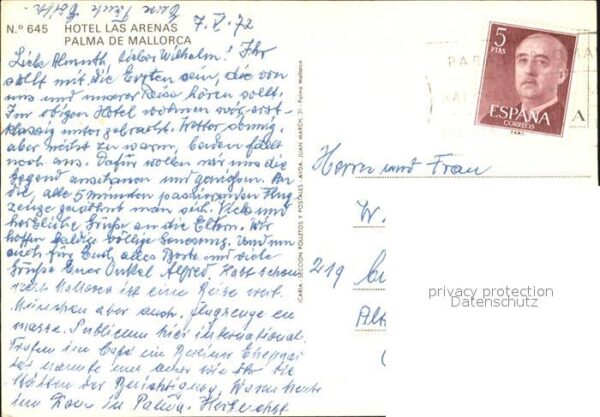 Eure Tante
N.º 645 HOTEL LAS ARENAS 7.V.72
PALMA DE MALLORCA
Liebe Almuth, lieber Wilhelm! Ihr
sollt mit die Ersten sein, die von
uns und unserer Reise hören sollt.
Im obigen Hotel wohnen wir, erst-
klassig untergebracht. Wetter sonnig,
aber nicht zu warm, baden fällt
noch aus. Dafür wollen wir uns die
Gegend ansehen und genießen. An
die, alle 5 Minuten passierenden Flug-
zeuge gewöhnt man sich. Viele und
herzliche Grüße an die Eltern. Wir
hoffen baldige völlige Genesung. Und nun
auch für Euch alles Gute und viele
Grüße Euer Onkel Alfred.
Mallorca ist eine Reise wert.
Menschen aber auch. Flugzeuge en
masse. Publikum hier international.
Trafen im Café ein Berliner Ehepaar
der Besichtigung. Waren heute
im Dom in Palma. Herzlichst
ICARIA - SECCION FOLLETOS Y POSTALES - AVDA. JUAN MARCH, 31 - Palma Mallorca
5
PTAS
ESPAÑA
CORREOS
A
Herrn und Frau
W.
219
privacy protection
Datenschutz